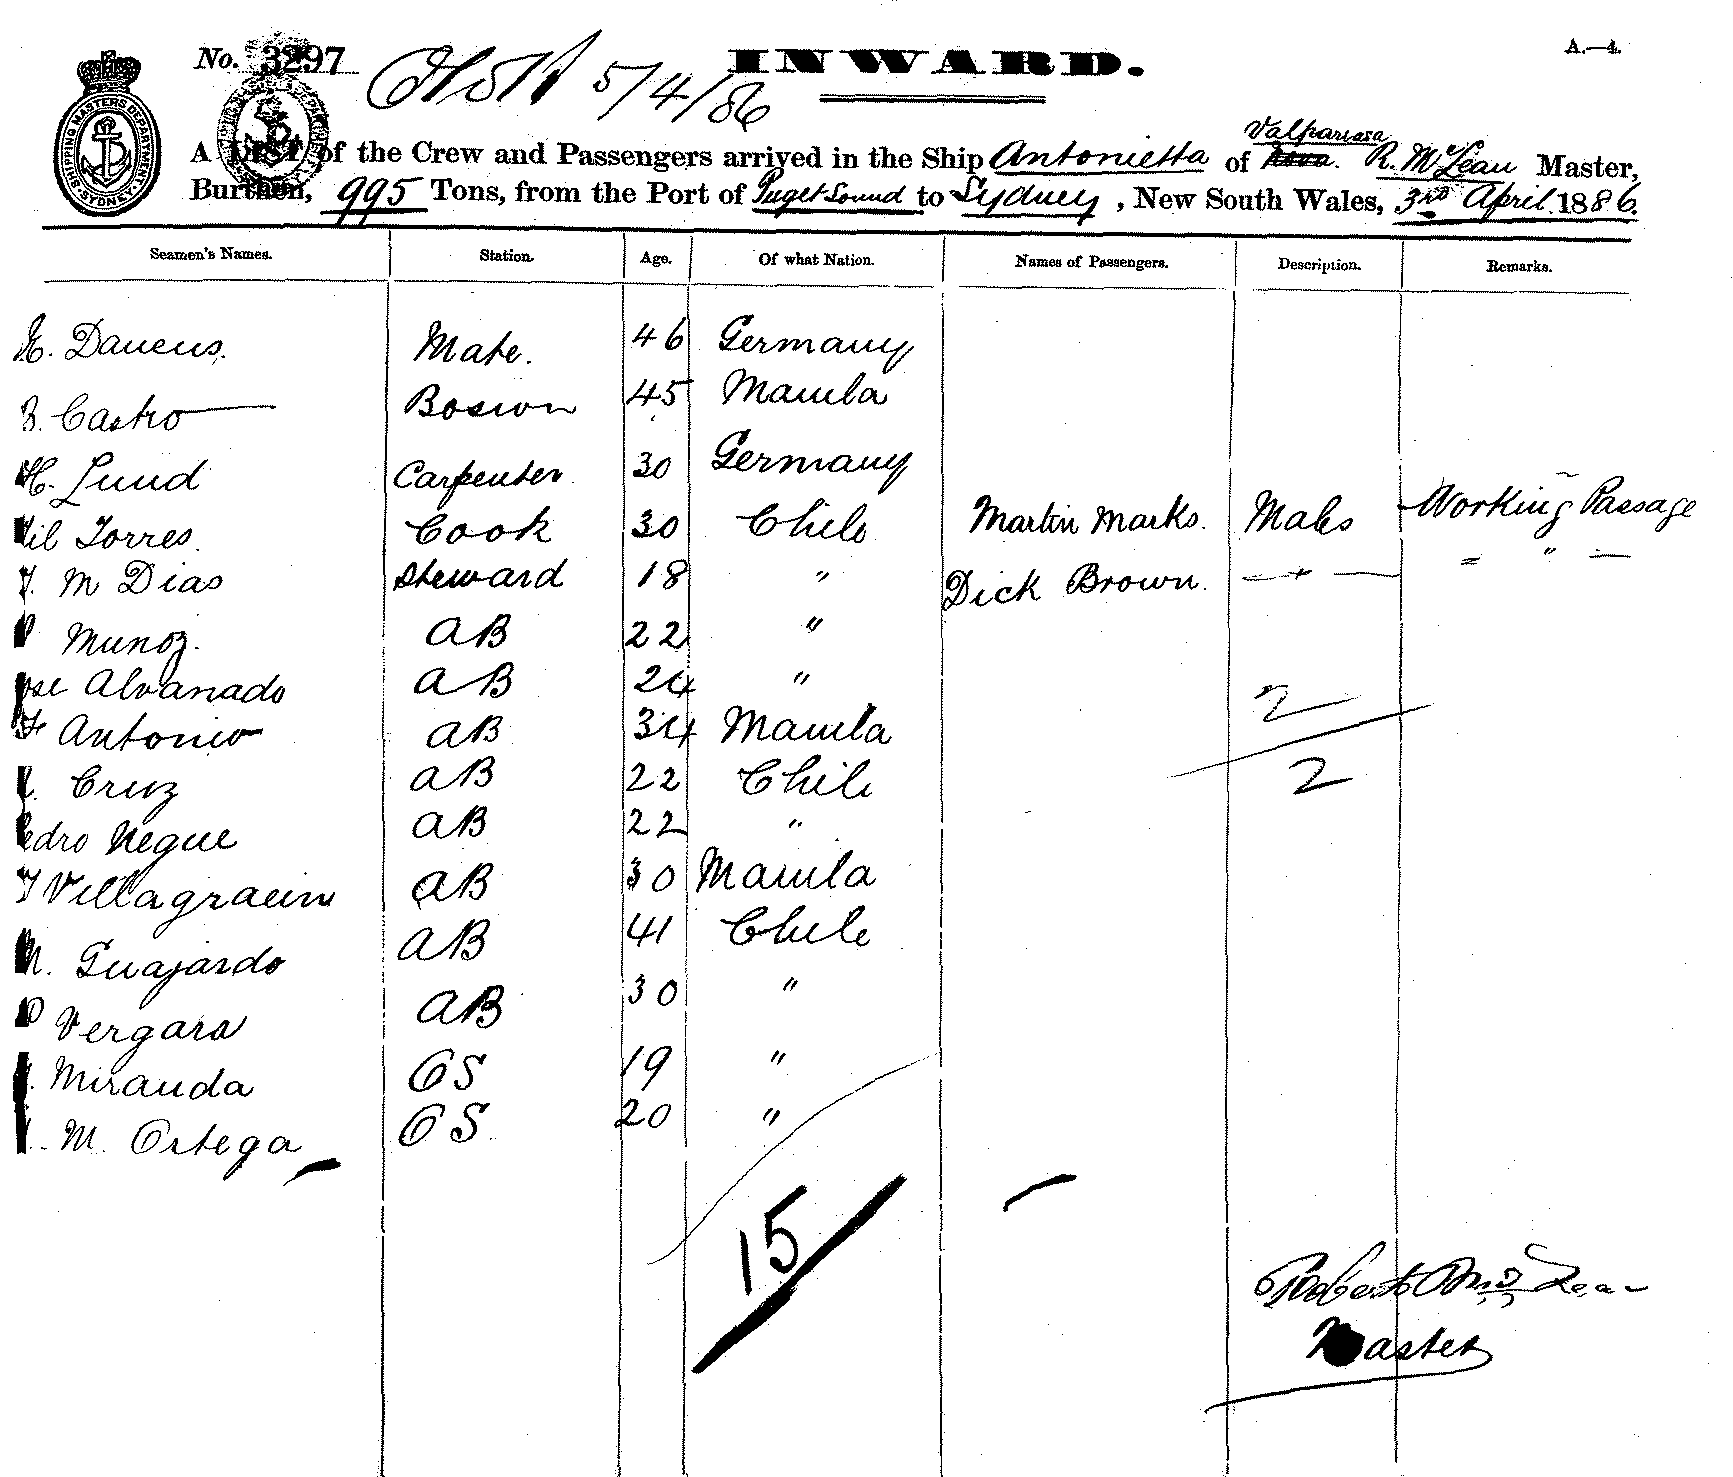 No. 3297 5/4/86 INWARD. A.—4.
SHIPPING MASTERS DEPARTMENT SYDNEY
Valparaiso
A LIST of the Crew and Passengers arrived in the Ship Antonietta of R. McLean Master,
Burthen, 995 Tons, from the Port of Puget Sound to Sydney, New South Wales, 3rd April 1886.
Seamen's Names. Station. Age. Of what Nation. Names of Passengers. Description. Remarks.
Mate. 46 Germany
Castro Boswn 45 Manila
H. Lund Carpenter 30 Germany
Torres. Cook 30 Chile Martin Marks. Males Working Passage
M Dias Steward 18 " Dick Brown. " "
Munoz. AB 22 "
Alvanado AB 24 " 2
F Antonio AB 34 Manila
Cruz AB 22 Chili 2
Negue AB 22 "
AB 30 Manila
Guajardo AB 41 Chile
Vergara AB 30 "
Miranda OS 19 "
M. Ortega OS 20 "
15
Robert McLean
Master